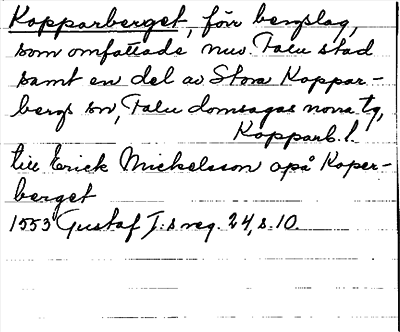 Kopparberget, förr bergslag,
som omfattade nuv. Falu stad
samt en del av Stora Koppar-
bergs sn, Falu domsagas norra tg,
Kopparb. l.
till Erick Mickelsson opå Koper-
berget
1553 Gustaf I:s reg. 24, s. 10.